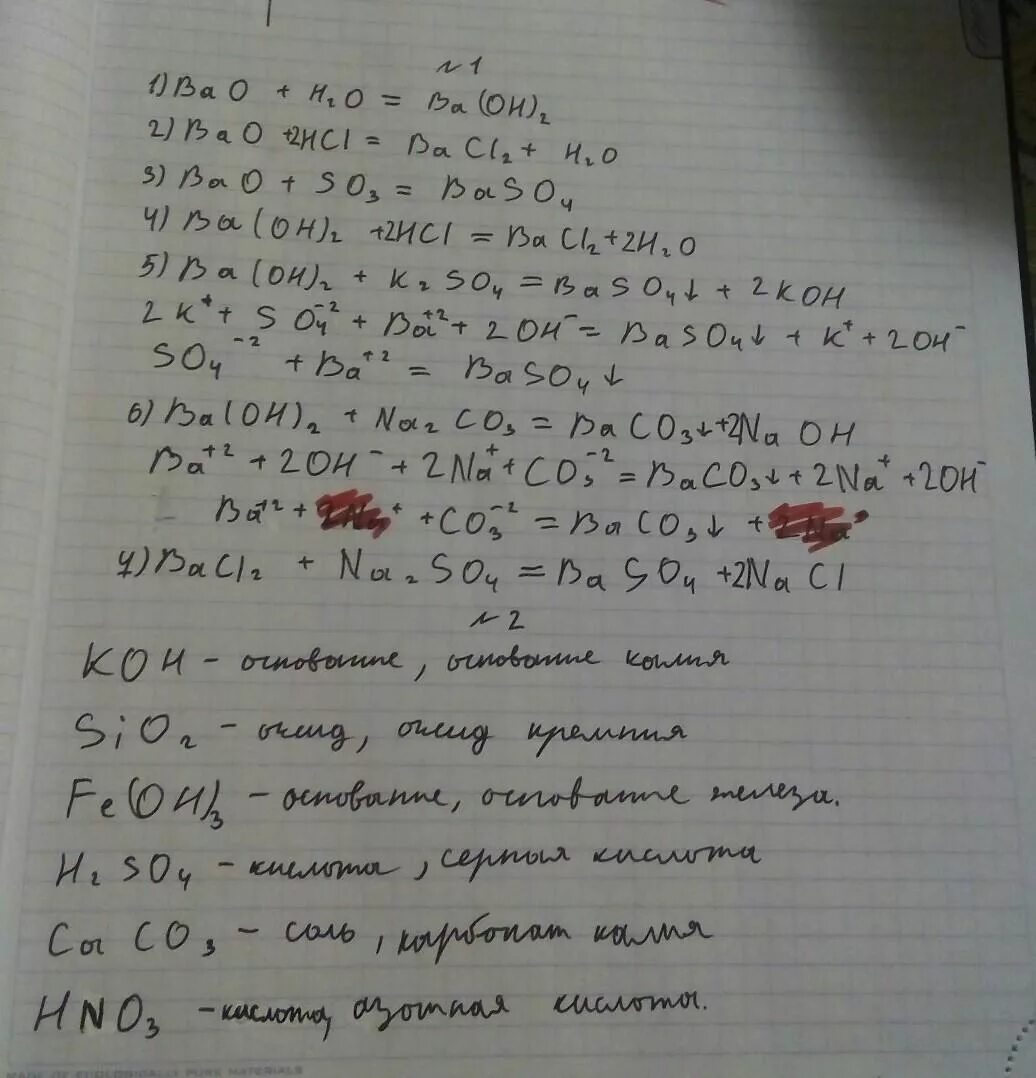 №1
1) BaO + H₂O = Ba(OH)₂
2) BaO +2HCl = BaCl₂ + H₂O
3) BaO + SO₃ = BaSO₄
4) Ba(OH)₂ +2HCl = BaCl₂+2H₂O
5) Ba(OH)₂ + K₂SO₄ = BaSO₄↓ + 2KOH
2K⁺ + SO₄⁻² + Ba⁺² + 2OH⁻ = BaSO₄↓ + K⁺ + 2OH⁻
SO₄⁻² + Ba⁺² = BaSO₄↓
6) Ba(OH)₂ + Na₂CO₃ = BaCO₃↓+2NaOH
Ba⁺² + 2OH⁻ + 2Na⁺ + CO₃⁻² = BaCO₃↓ + 2Na⁺ + 2OH⁻
Ba⁺² + +CO₃⁻² = BaCO₃↓ +
7) BaCl₂ + Na₂SO₄ = BaSO₄ +2NaCl
№2
KOH – основание, основание калия
SiO₂ – оксид, оксид кремния
Fe(OH)₃ – основание, основание железа.
H₂SO₄ – кислота, серная кислота
CaCO₃ – соль, карбонат калия
HNO₃ – кислота, азотная кислота.
MADE OF ECOLOGICALLY PURE MATERIALS